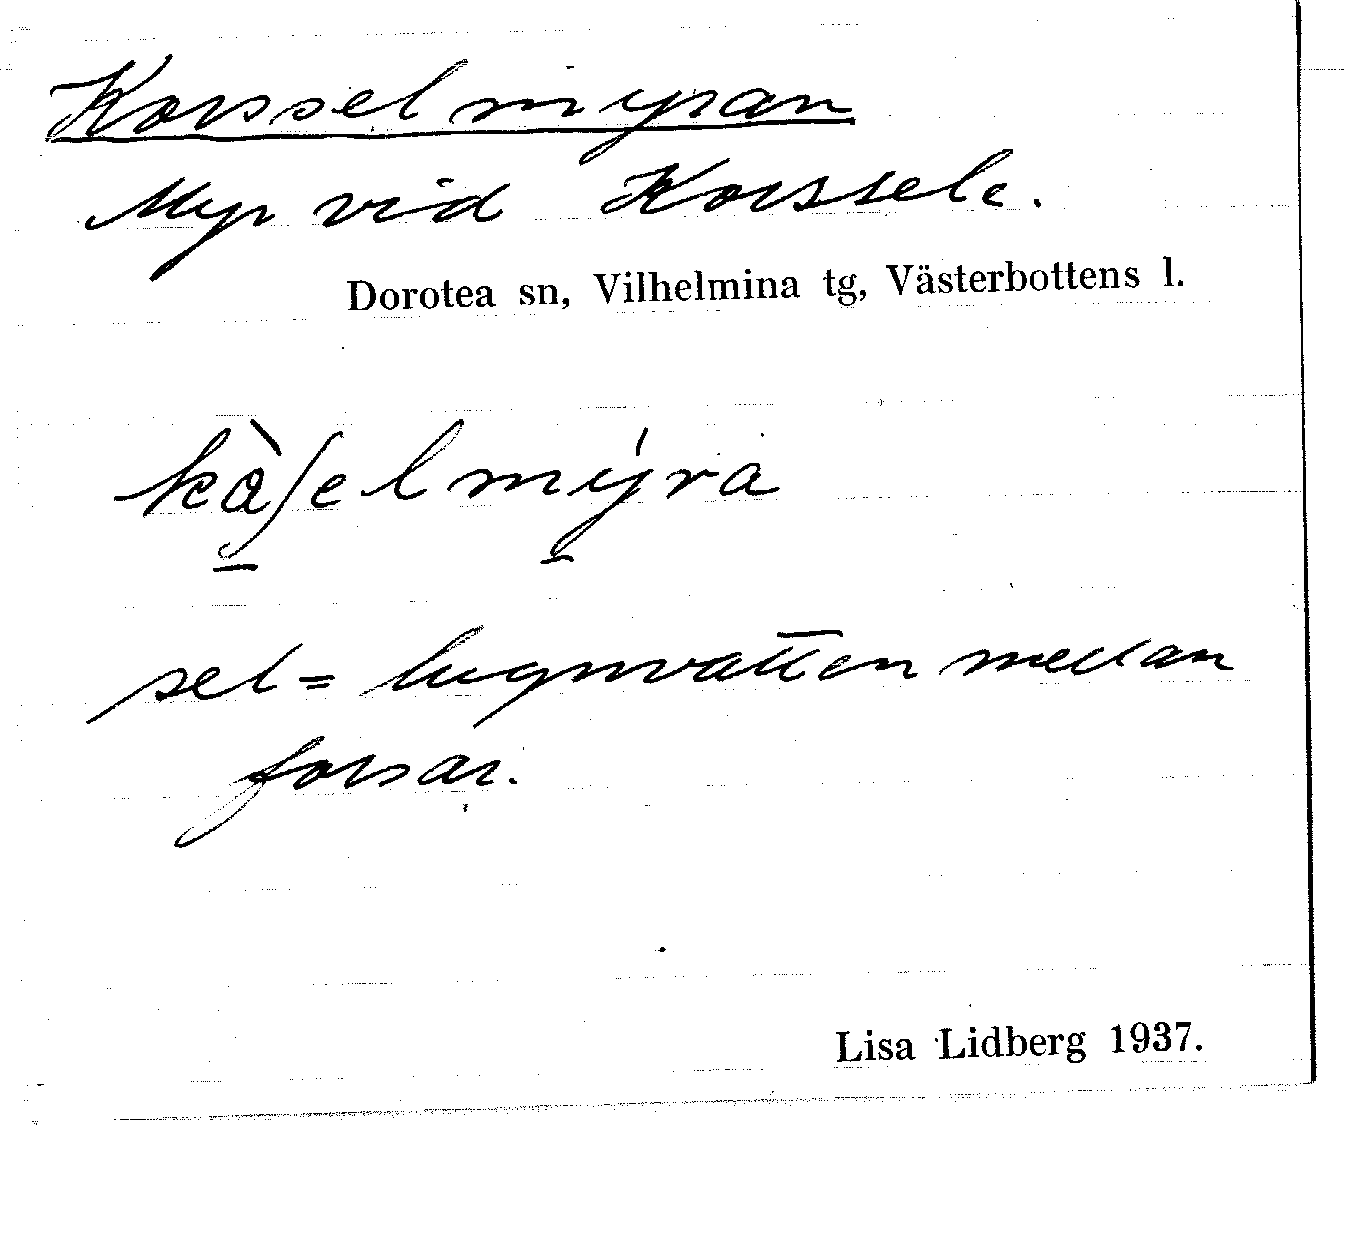 Korsselmyran
Myr vid Korssele.
Dorotea sn, Vilhelmina tg, Västerbottens l.
kàʃelmýra
sel = lugnvatten mellan
forsar.
Lisa Lidberg 1937.